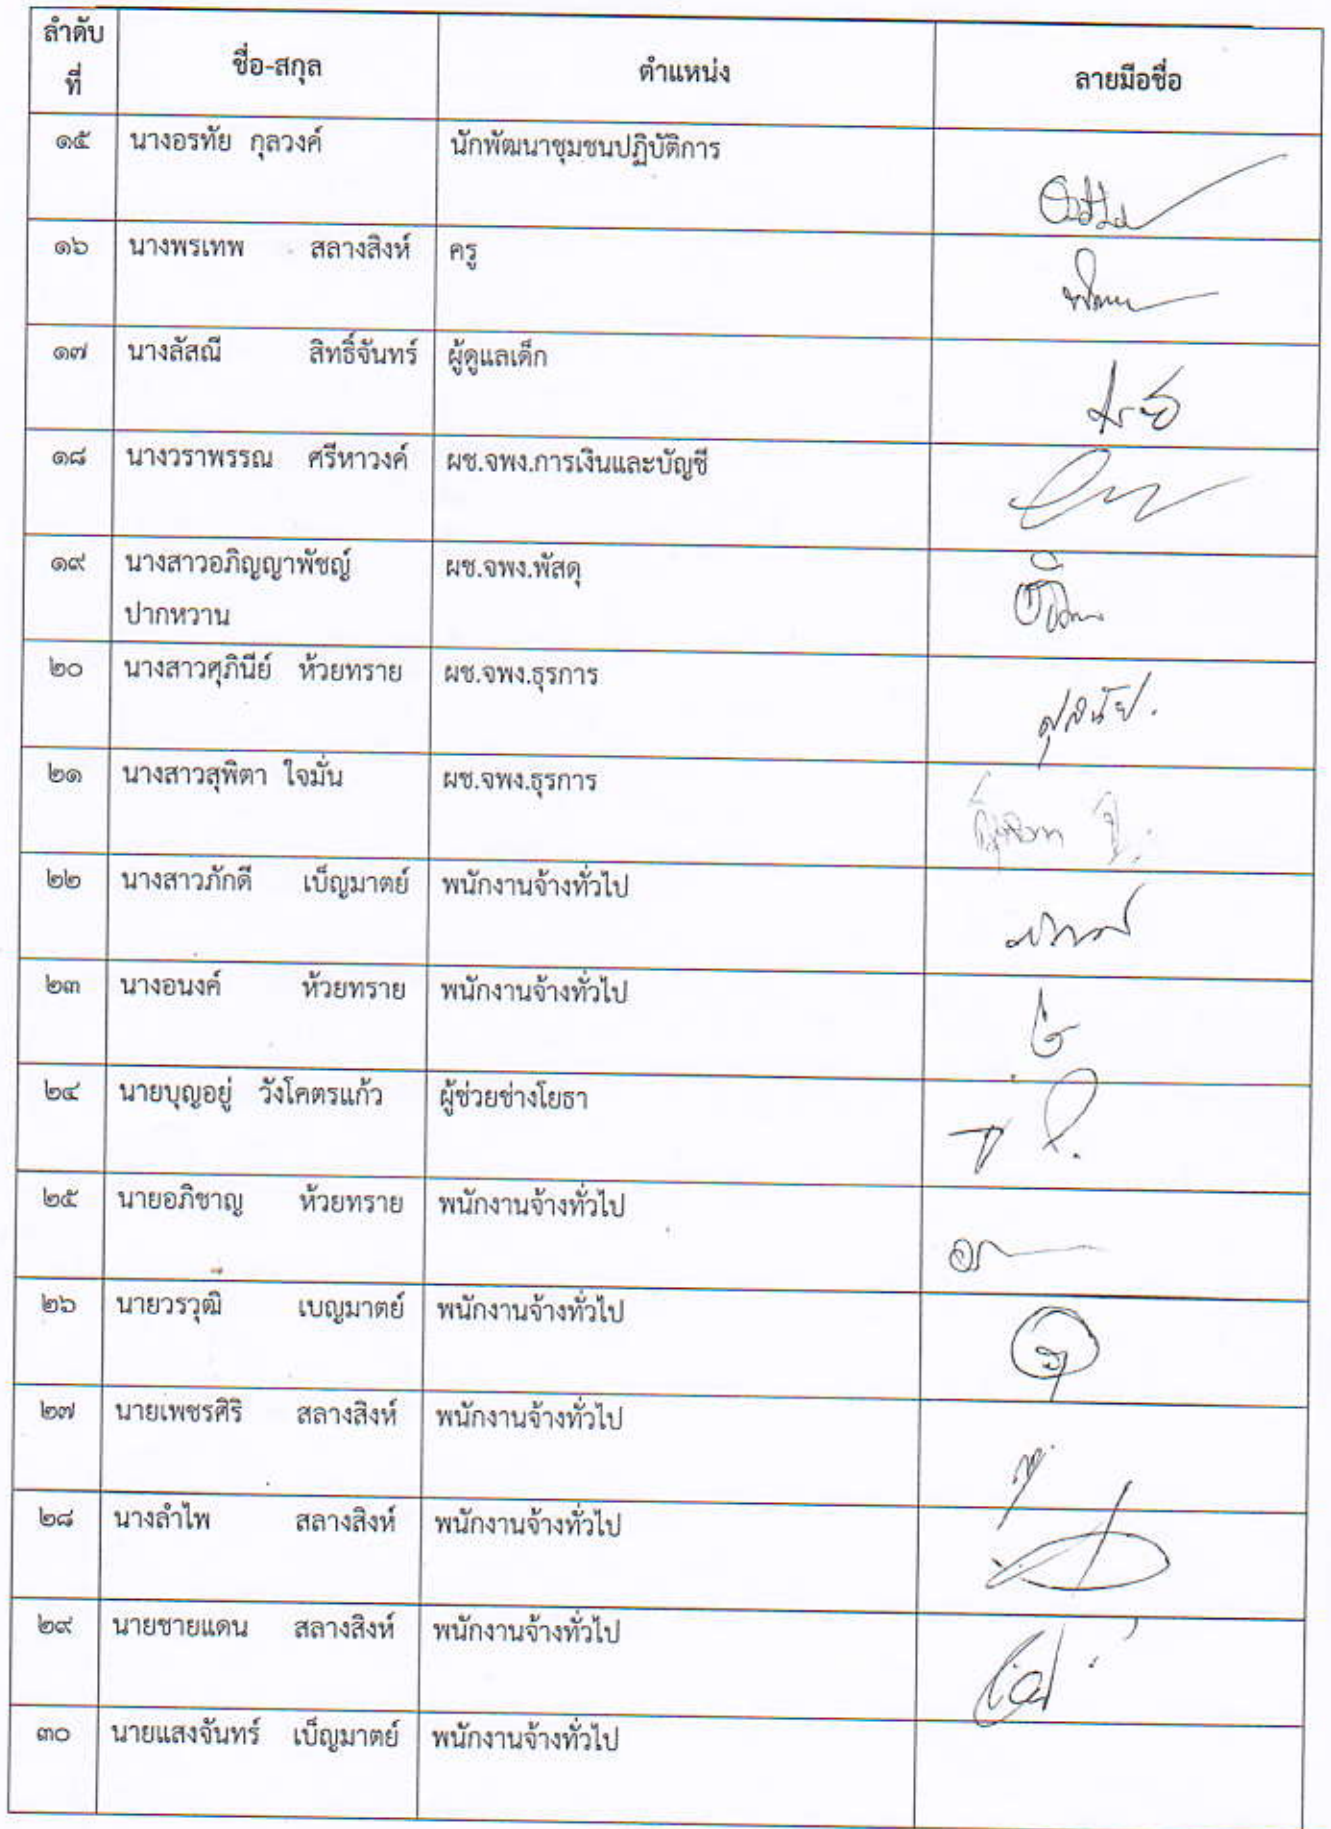 ลำดับ
ที่ ชื่อ-สกุล ตำแหน่ง ลายมือชื่อ
๑๕ นางอรทัย กุลวงค์ นักพัฒนาชุมชนปฏิบัติการ
๑๖ นางพรเทพ สลางสิงห์ ครู
๑๗ นางลัสณี สิทธิ์จันทร์ ผู้ดูแลเด็ก
๑๘ นางวราพรรณ ศรีหาวงค์ ผช.จพง.การเงินและบัญชี
๑๙ นางสาวอภิญญาพัชญ์ ผช.จพง.พัสดุ
ปากหวาน
๒๐ นางสาวศุภินีย์ ห้วยทราย ผช.จพง.ธุรการ
๒๑ นางสาวสุพิตา ใจมั่น ผช.จพง.ธุรการ
๒๒ นางสาวภักดี เบ็ญมาตย์ พนักงานจ้างทั่วไป
๒๓ นางอนงค์ ห้วยทราย พนักงานจ้างทั่วไป
๒๔ นายบุญอยู่ วังโคตรแก้ว ผู้ช่วยช่างโยธา
๒๕ นายอภิชาญ ห้วยทราย พนักงานจ้างทั่วไป
๒๖ นายวรวุฒิ เบญมาตย์ พนักงานจ้างทั่วไป
๒๗ นายเพชรศิริ สลางสิงห์ พนักงานจ้างทั่วไป
๒๘ นางลำไพ สลางสิงห์ พนักงานจ้างทั่วไป
๒๙ นายชายแดน สลางสิงห์ พนักงานจ้างทั่วไป
๓๐ นายแสงจันทร์ เบ็ญมาตย์ พนักงานจ้างทั่วไป